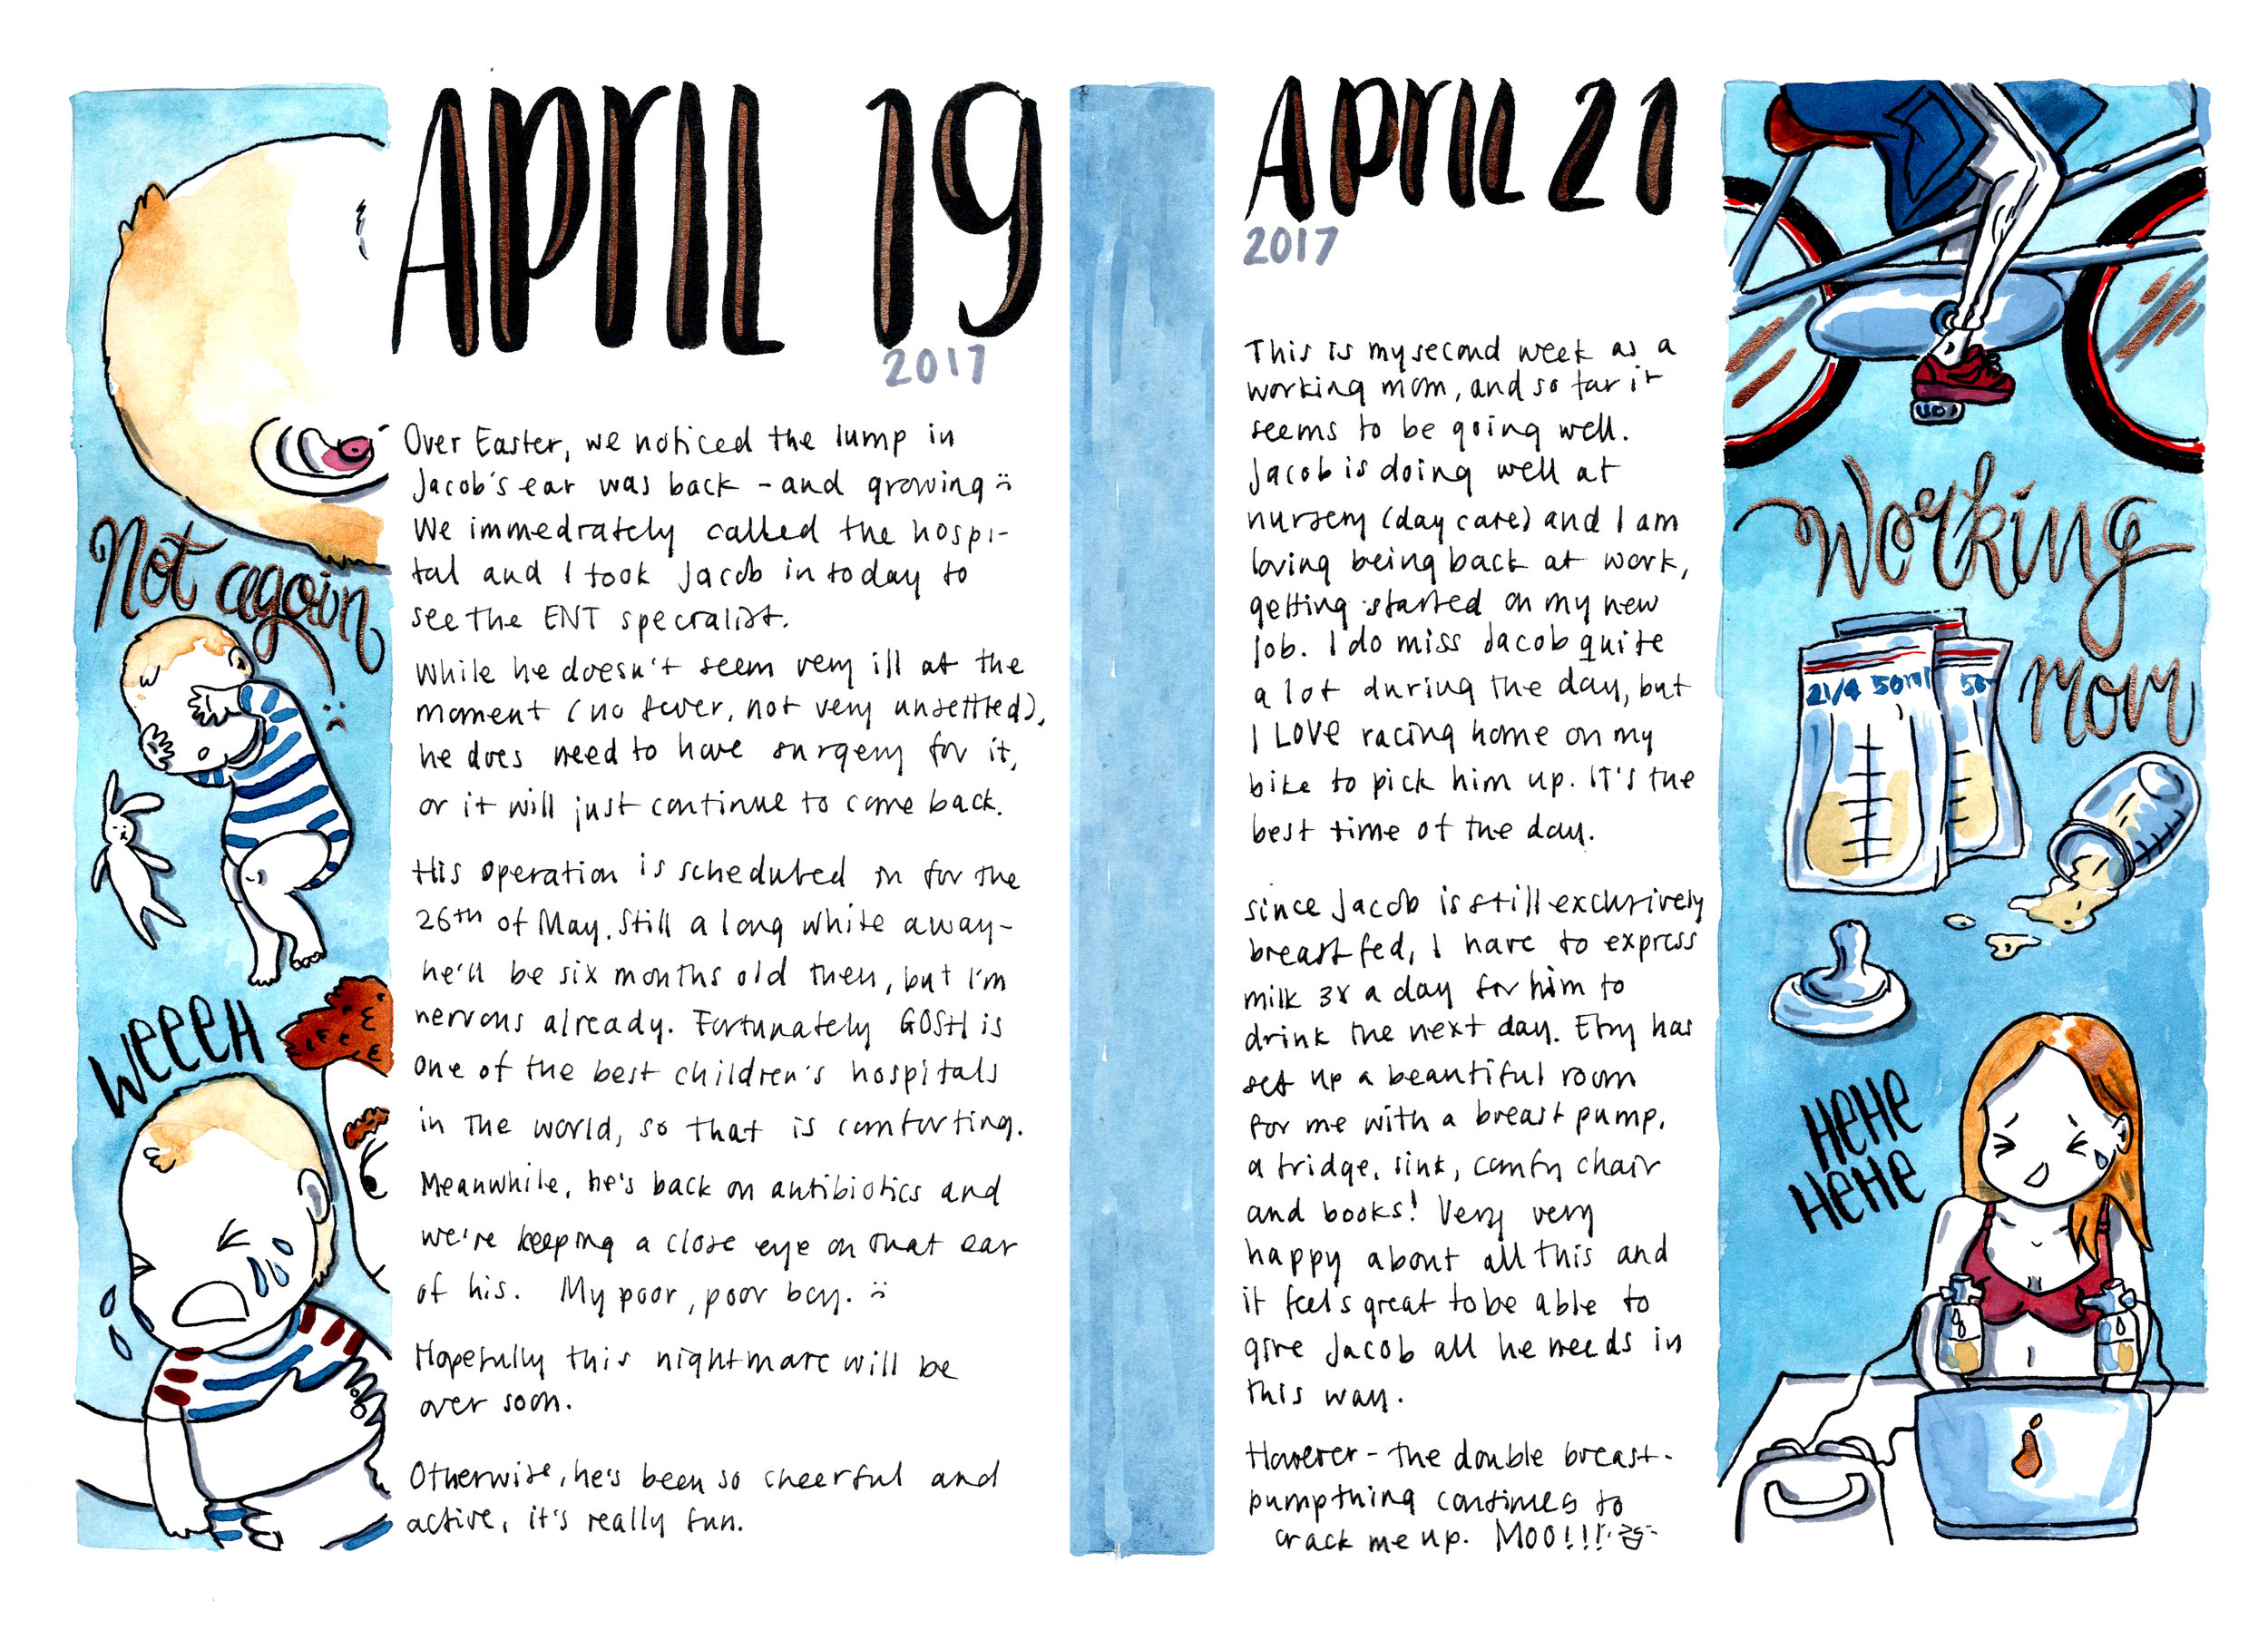 APRIL 19
2017
Over Easter, we noticed the lump in
Jacob's ear was back - and growing :(
We immediately called the hospi-
tal and I took Jacob in today to
see the ENT specialist.
While he doesn't seem very ill at the
moment (no fever, not very unsettled),
he does need to have surgery for it,
or it will just continue to come back.
His operation is scheduled in for the
26th of May. Still a long while away-
he'll be six months old then, but I'm
nervous already. Fortunately GOSH is
one of the best children's hospitals
in the world, so that is comforting.
Meanwhile, he's back on antibiotics and
we're keeping a close eye on that ear
of his. My poor, poor boy. :(
Hopefully this nightmare will be
over soon.
Otherwise, he's been so cheerful and
active, it's really fun.
Not again
:(
WEEEH
APRIL 21
2017
This is my second week as a
working mom, and so far it
seems to be going well.
Jacob is doing well at
nursery (day care) and I am
loving being back at work,
getting started on my new
job. I do miss Jacob quite
a lot during the day, but
I LOVE racing home on my
bike to pick him up. It's the
best time of the day.
Since Jacob is still exclusively
breastfed, I have to express
milk 3x a day for him to
drink the next day. Etsy has
set up a beautiful room
for me with a breast pump,
a fridge, sink, comfy chair
and books! Very very
happy about all this and
it feels great to be able to
give Jacob all he needs in
this way.
However - the double breast-
pump thing continues to
crack me up. MOO!!!
Working
Mom
21/4 50ml
50
HEHE
HEHE